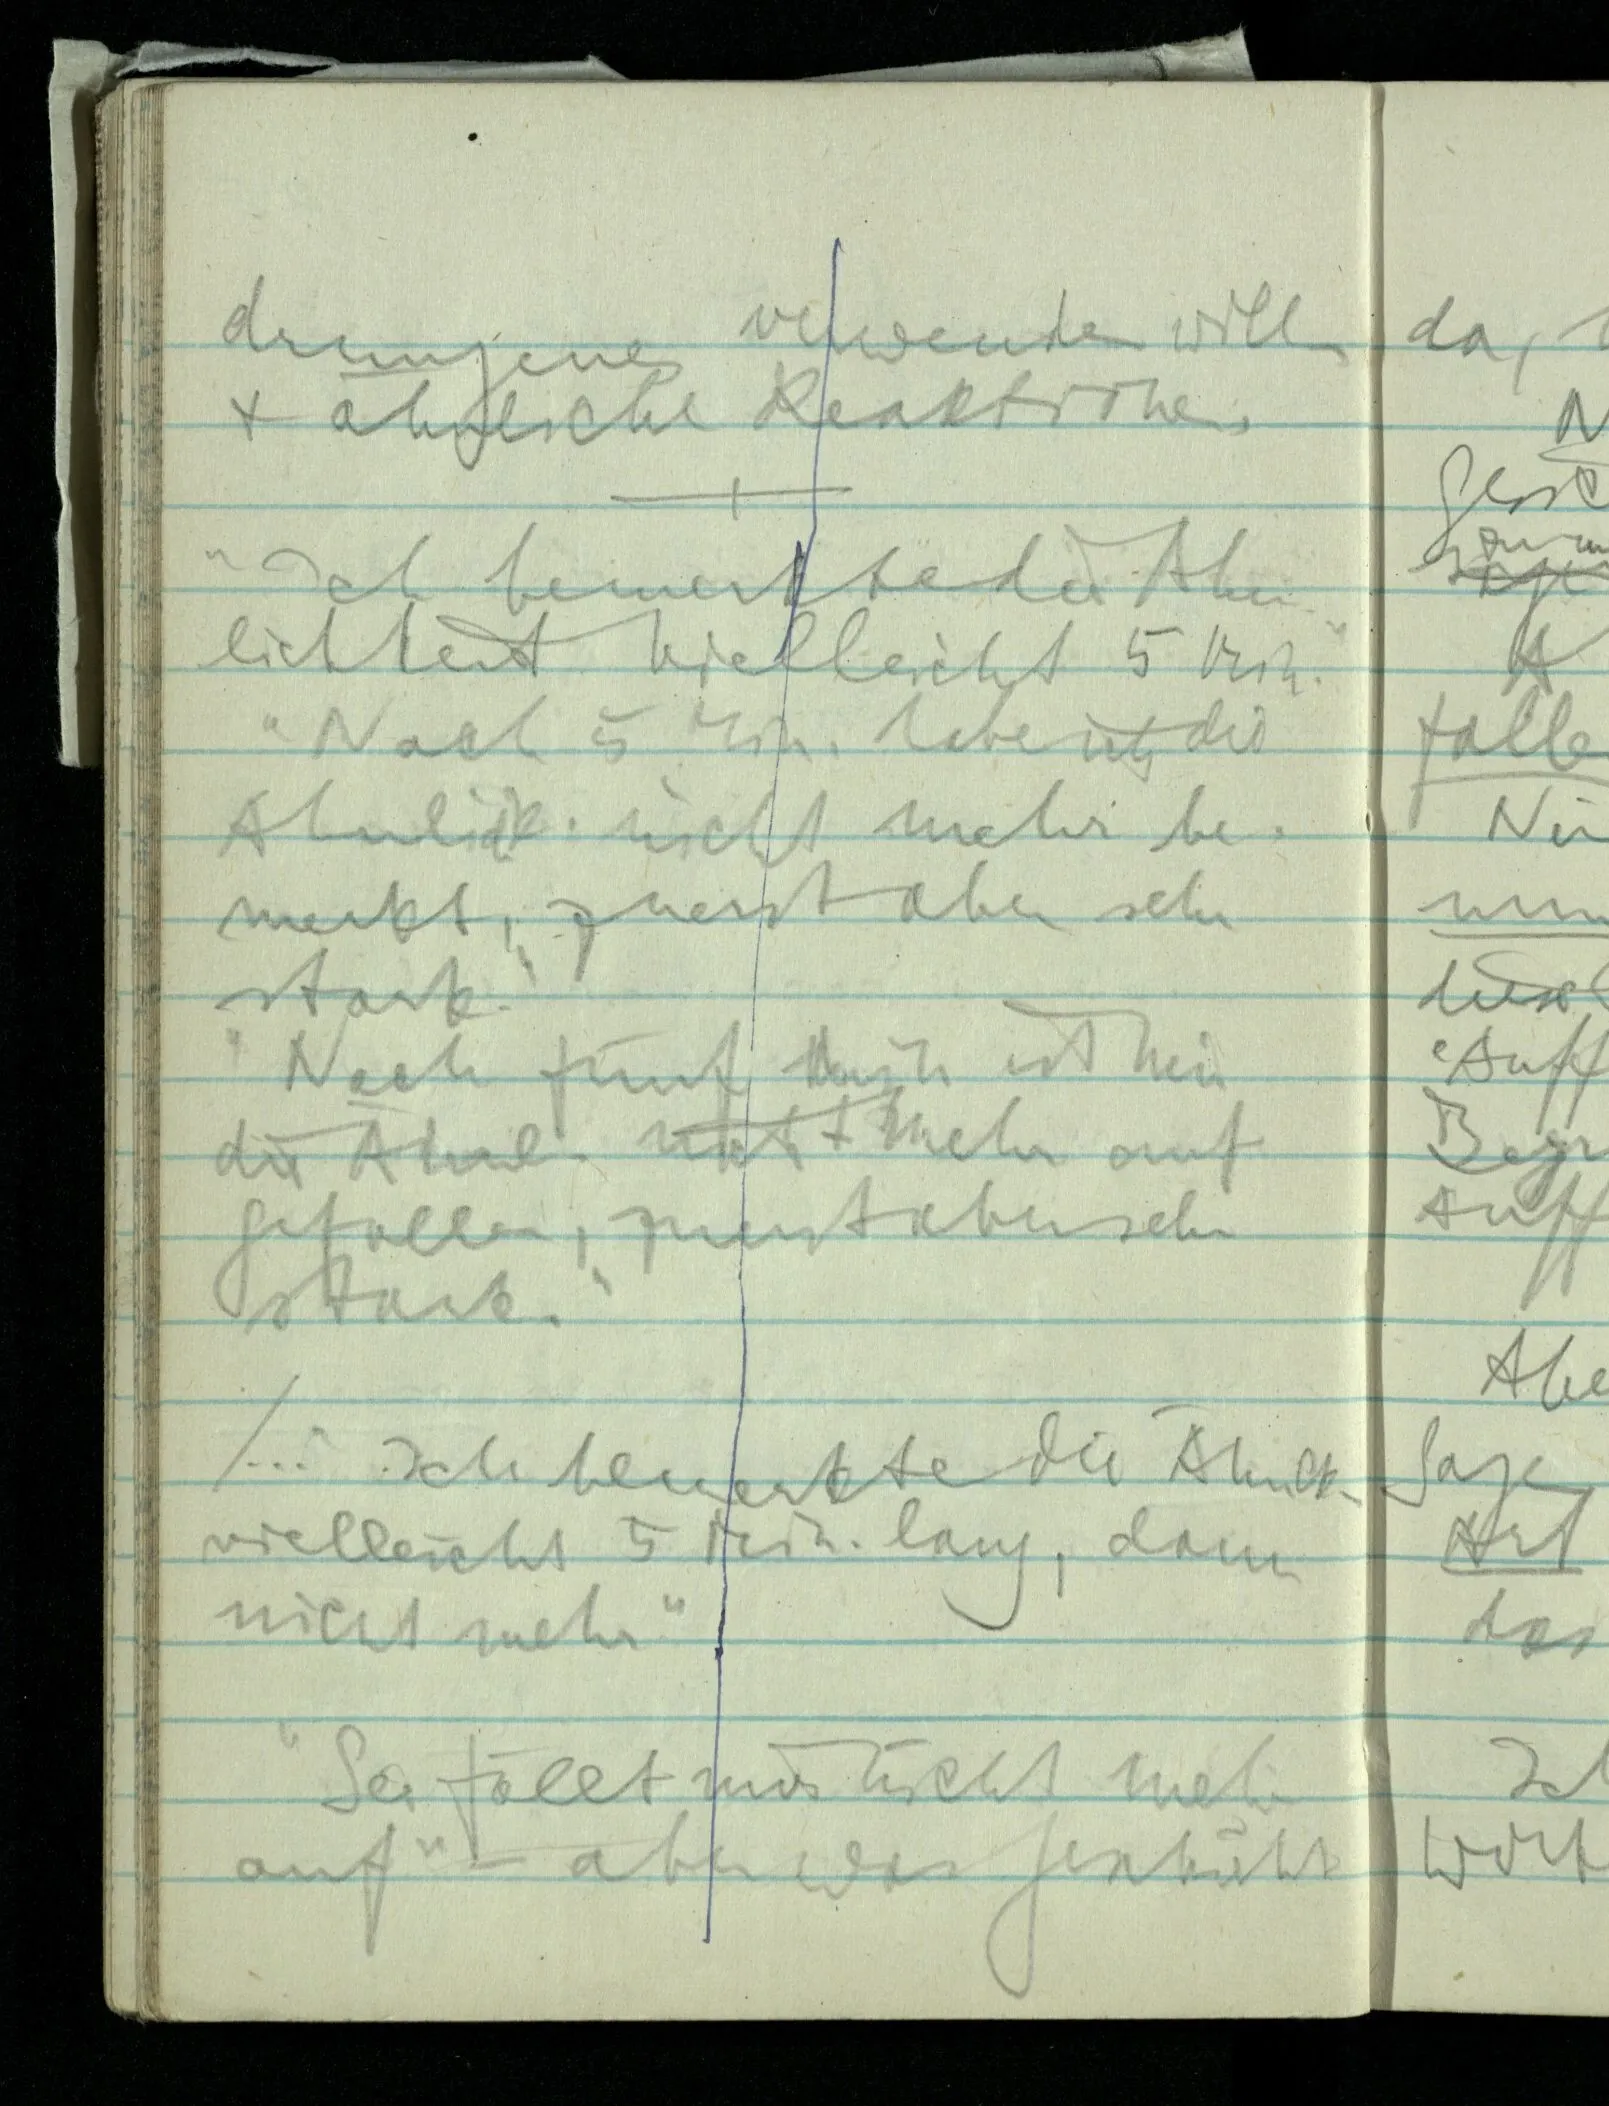 drungenes verwenden will
+ ähnliche Reaktionen.
"Ich bemerkte die Ähn-
lichkeit vielleicht 5 Min."
"Nach 5 Min. habe ich die
Ähnlichk. nicht mehr be-
merkt, zuerst aber sehr
stark."
"Nach fünf Min ist mir
die Ähnl. nicht mehr auf
gefallen, zuerst aber sehr
stark."
/... Ich bemerkte die Ähnlk.
vielleicht 5 Min. lang, dann
nicht mehr"
"Sie fällt mir nicht mehr
auf" – aber was geschieht
da,
falle
Auff
Auff
Abe
Sage,
Art
das